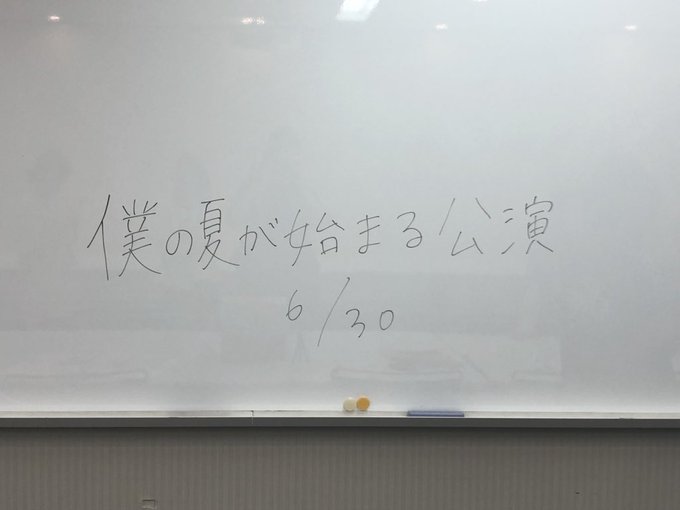 僕の夏が始まる公演
6/30